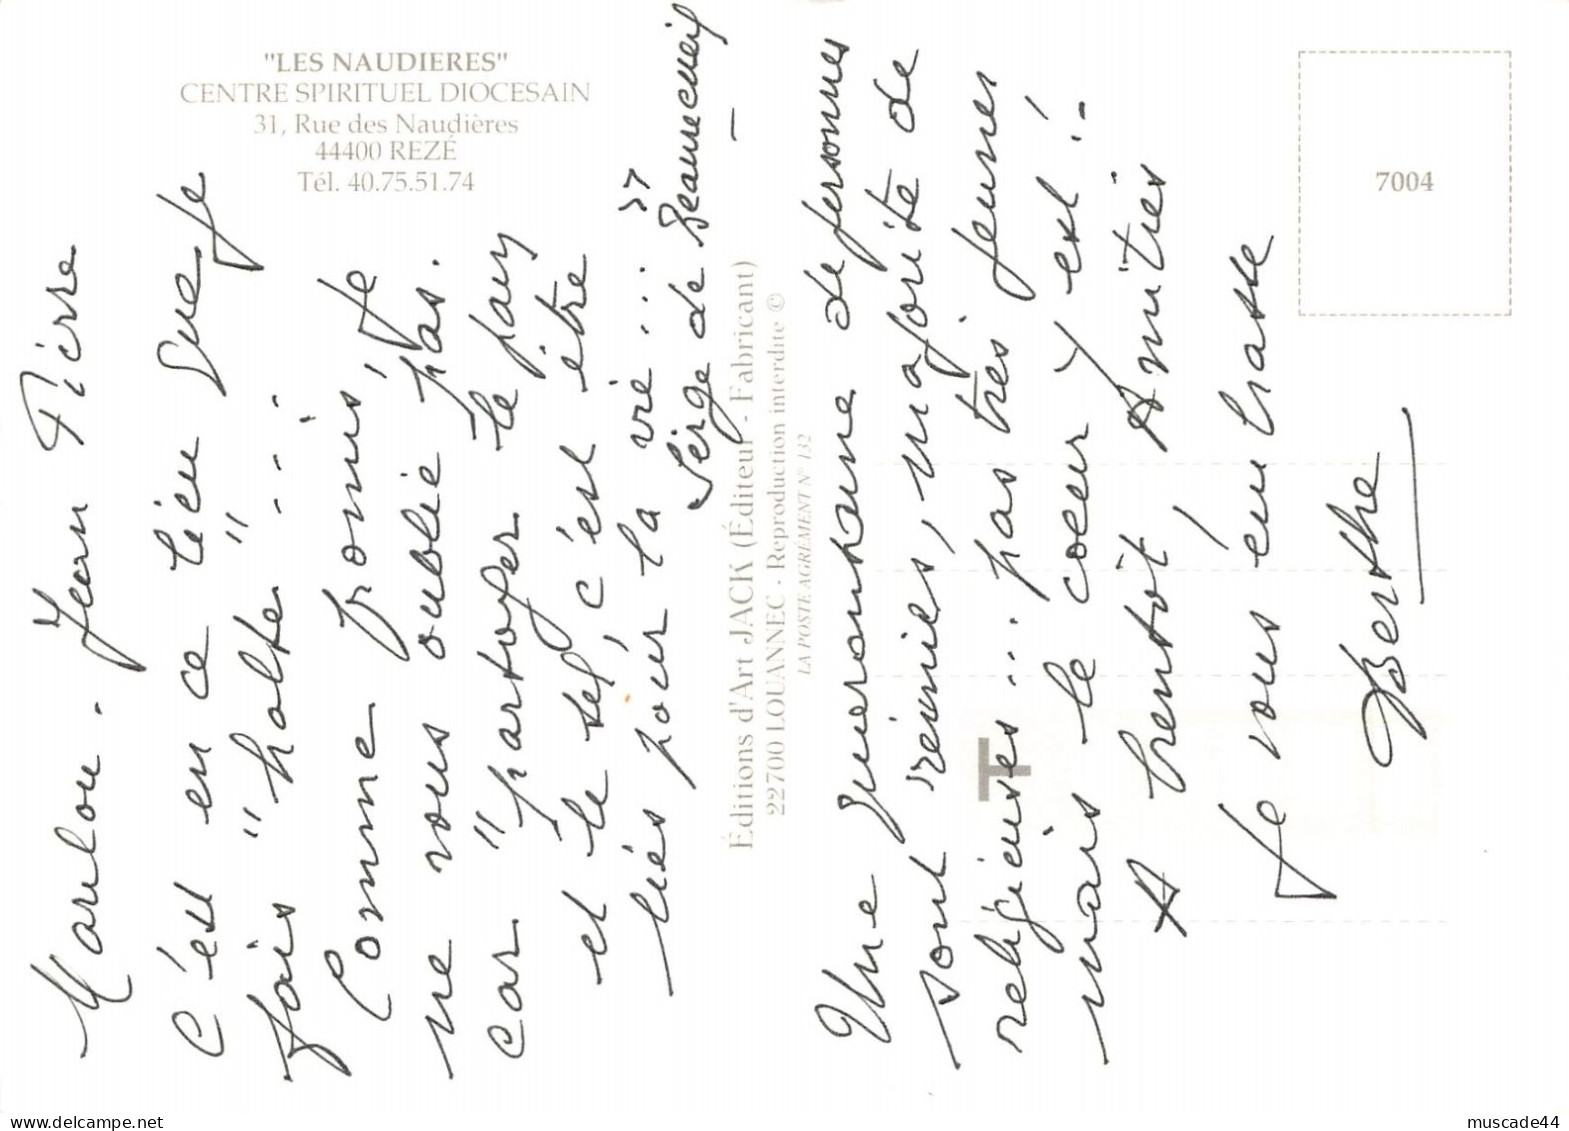 "LES NAUDIERES"
CENTRE SPIRITUEL DIOCESAIN
31, Rue des Naudières
44400 REZÉ
Tél. 40.75.51.74
Marlou - Jean Pierre
C'est en ce lieu que je
fais "halte" ....
Comme promis, je
ne vous oublie pas.
car "partager le pain
et le sel, c'est être
liés pour la vie ..."
Serge de Beaurecueil
Éditions d'Art JACK (Éditeur - Fabricant)
22700 LOUANNEC - Reproduction interdite ©
LA POSTE AGRÉMENT N° 132
Une quarantaine de personnes
sont réunies, majorité de
religieuses... pas très jeunes
mais le coeur y est !
A bientôt, Amitiés
Je vous embrasse
Berthe
7004
T
muscade44